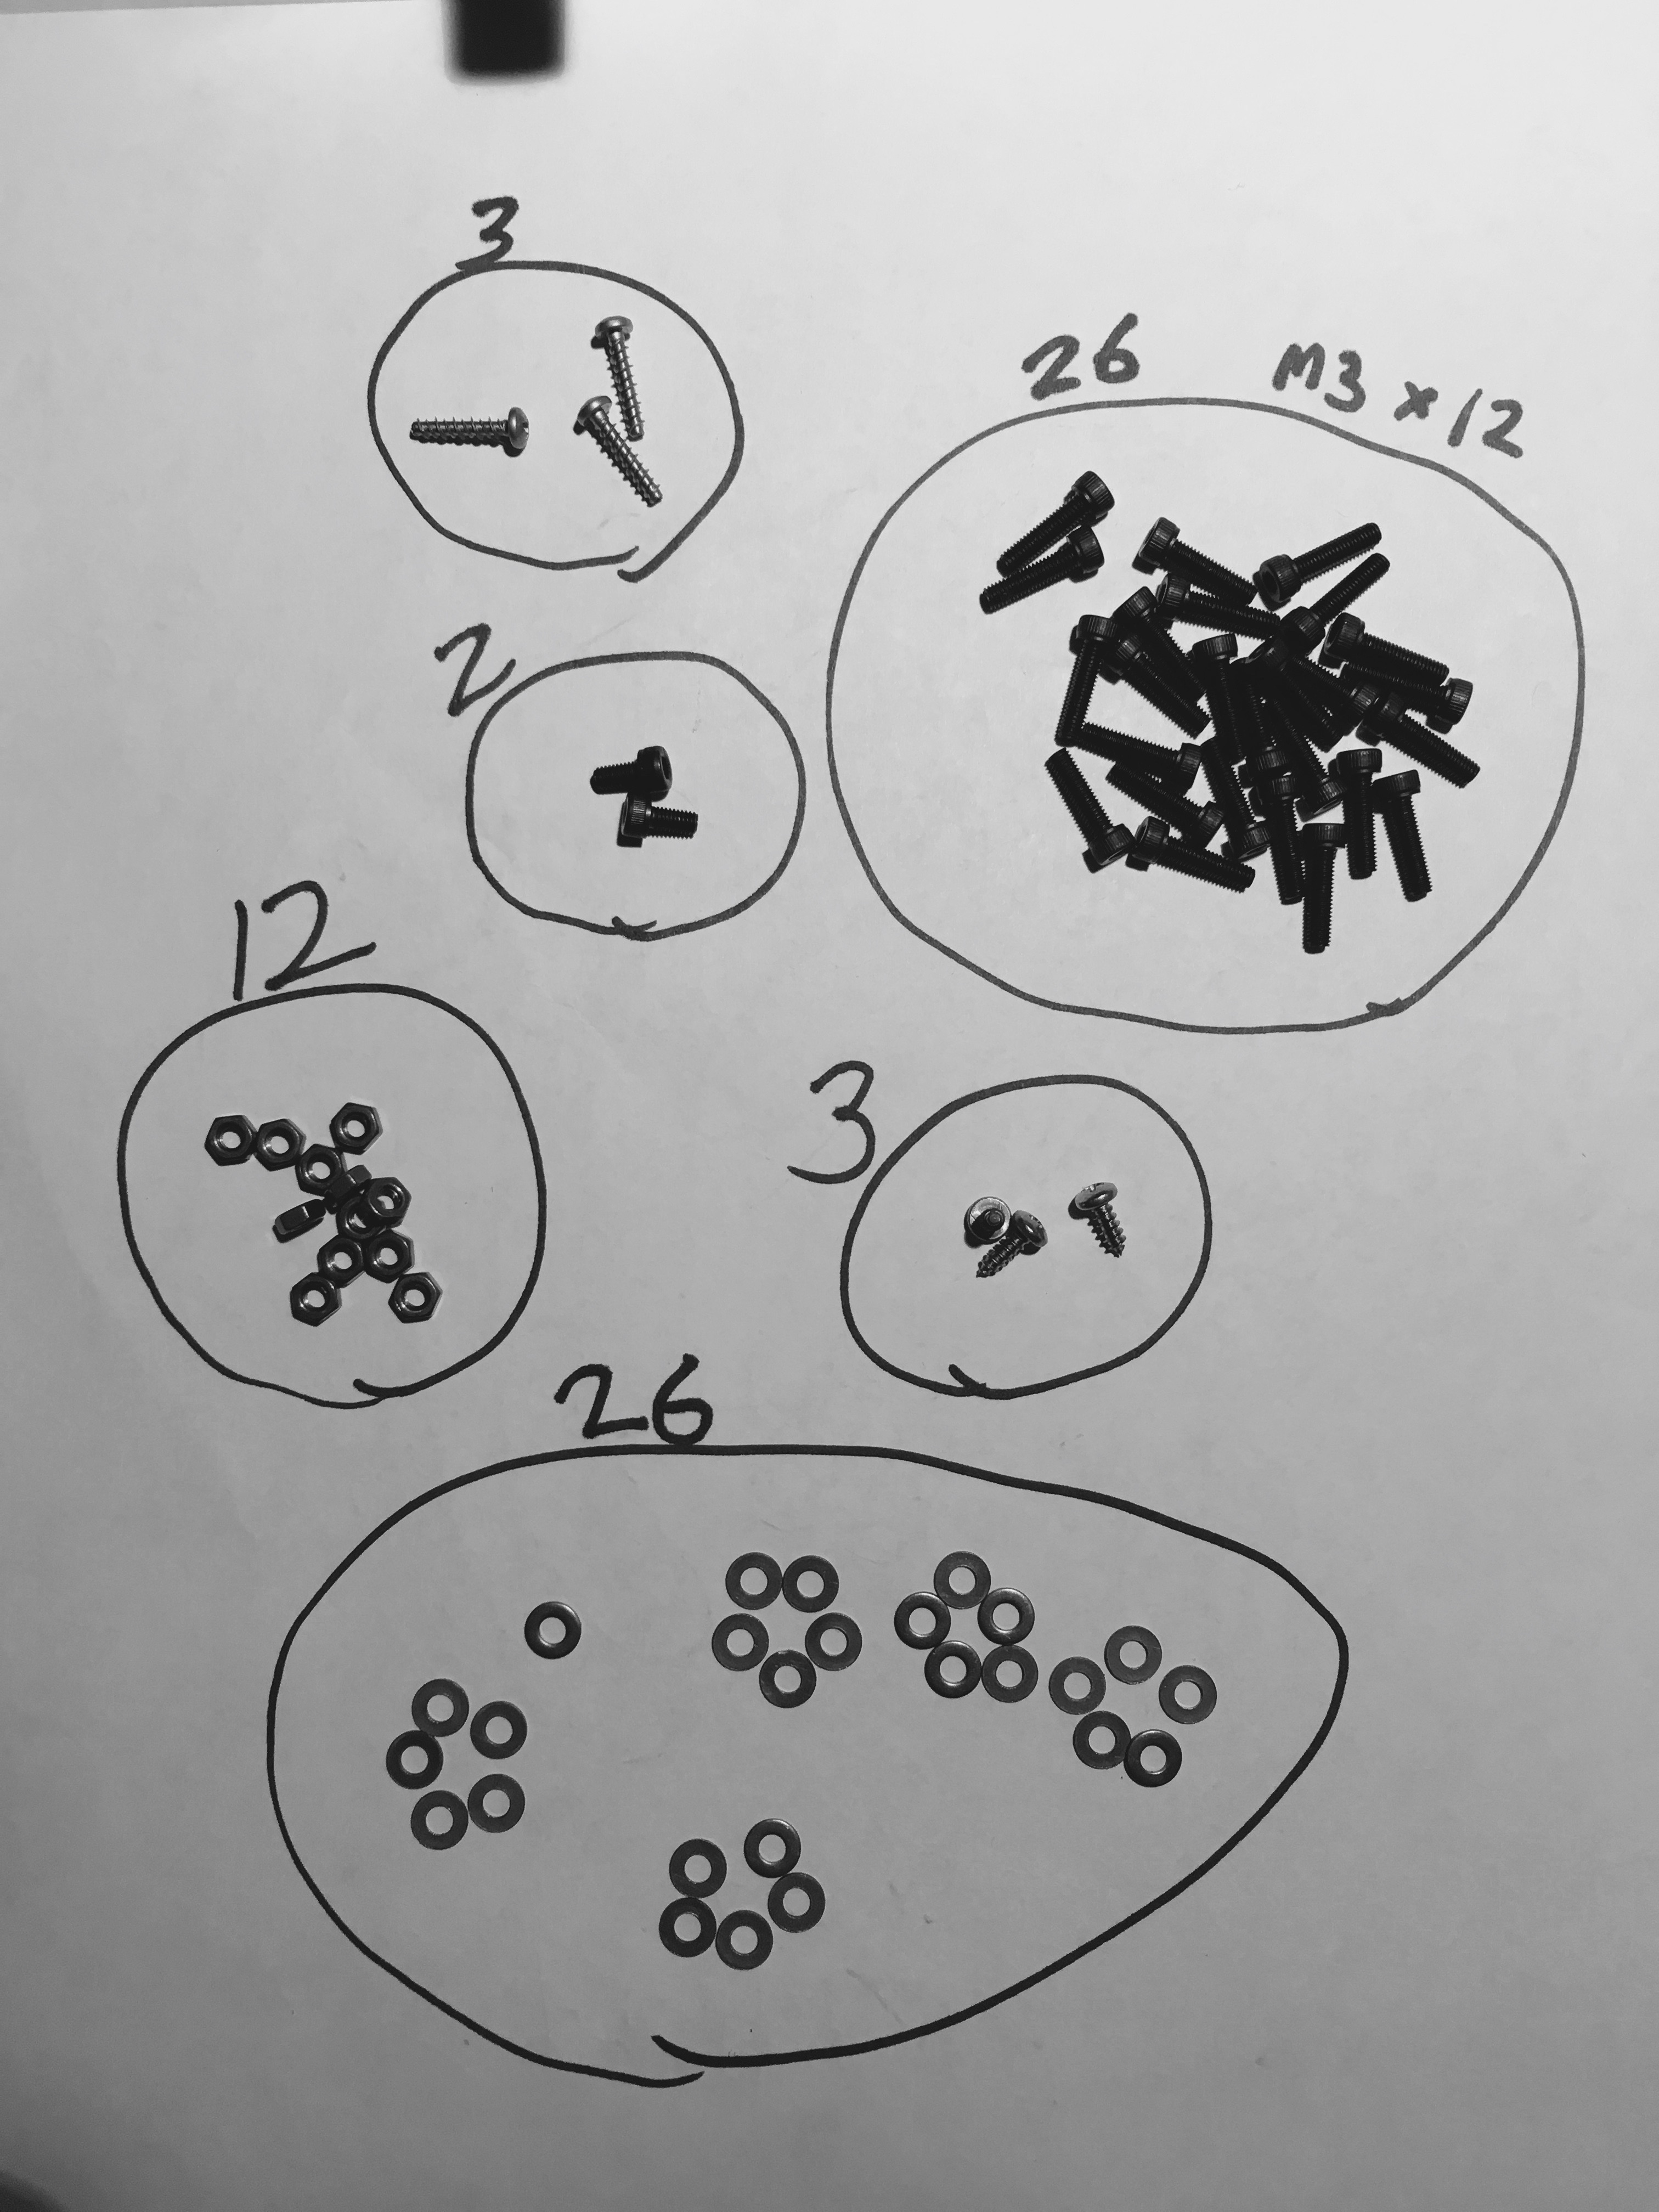 3
26 M3 x 12
2
12
3
26